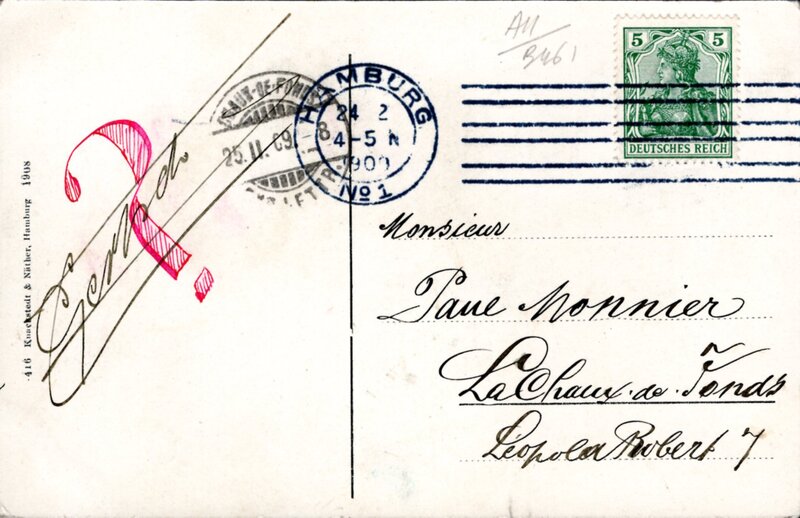 A11
B461
5 5
DEUTSCHES REICH
HAMBURG
24 2
4-5 N
1909
No 1
25.II.09. -8
?
416 Knackstedt & Näther, Hamburg 1908
Monsieur
Paul Monnier
La Chaux-de-Fonds
Léopold Robert 7